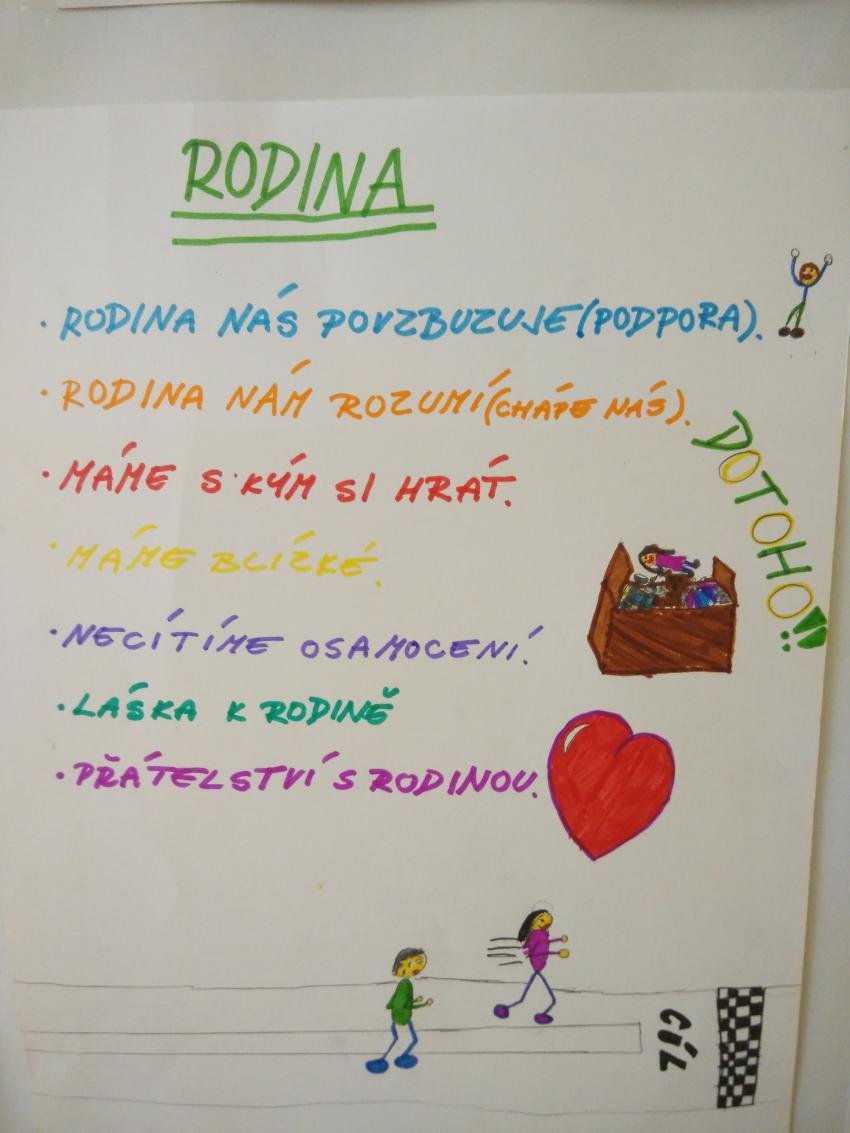 RODINA
· RODINA NÁS POVZBUZUJE (PODPORA).
· RODINA NÁM ROZUMÍ (CHÁPE NÁS).
· MÁME S KÝM SI HRÁT.
· MÁME BLÍZKÉ.
· NECÍTÍME OSAMOCENÍ.
· LÁSKA K RODINĚ
· PŘÁTELSTVÍ S RODINOU.
DOTOHO!!
CÍL